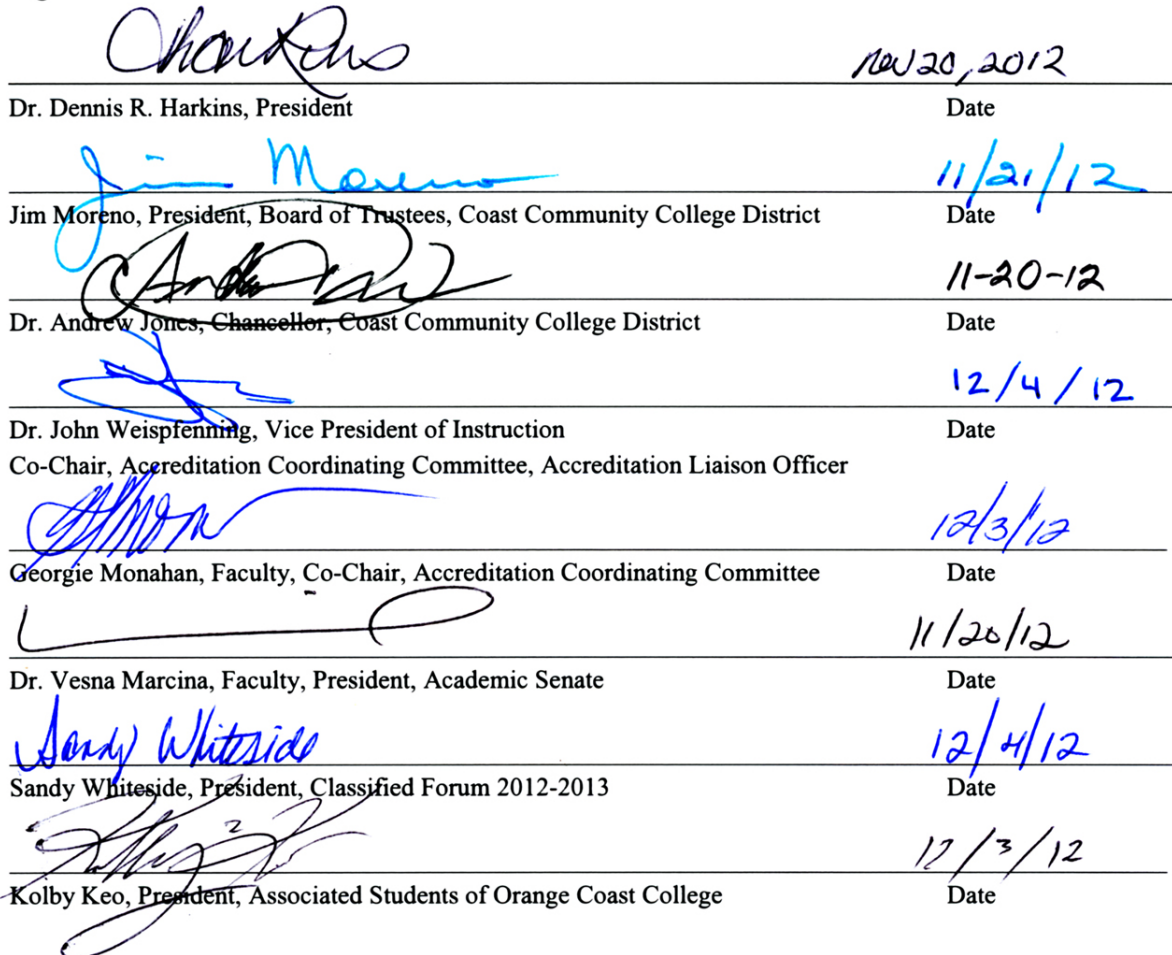 Nov 20, 2012
Dr. Dennis R. Harkins, President Date
Jim Moreno 11/21/12
Jim Moreno, President, Board of Trustees, Coast Community College District Date
11-20-12
Dr. Andrew Jones, Chancellor, Coast Community College District Date
12/4/12
Dr. John Weispfenning, Vice President of Instruction Date
Co-Chair, Accreditation Coordinating Committee, Accreditation Liaison Officer
12/3/12
Georgie Monahan, Faculty, Co-Chair, Accreditation Coordinating Committee Date
11/20/12
Dr. Vesna Marcina, Faculty, President, Academic Senate Date
Sandy Whiteside 12/4/12
Sandy Whiteside, President, Classified Forum 2012-2013 Date
12/3/12
Kolby Keo, President, Associated Students of Orange Coast College Date